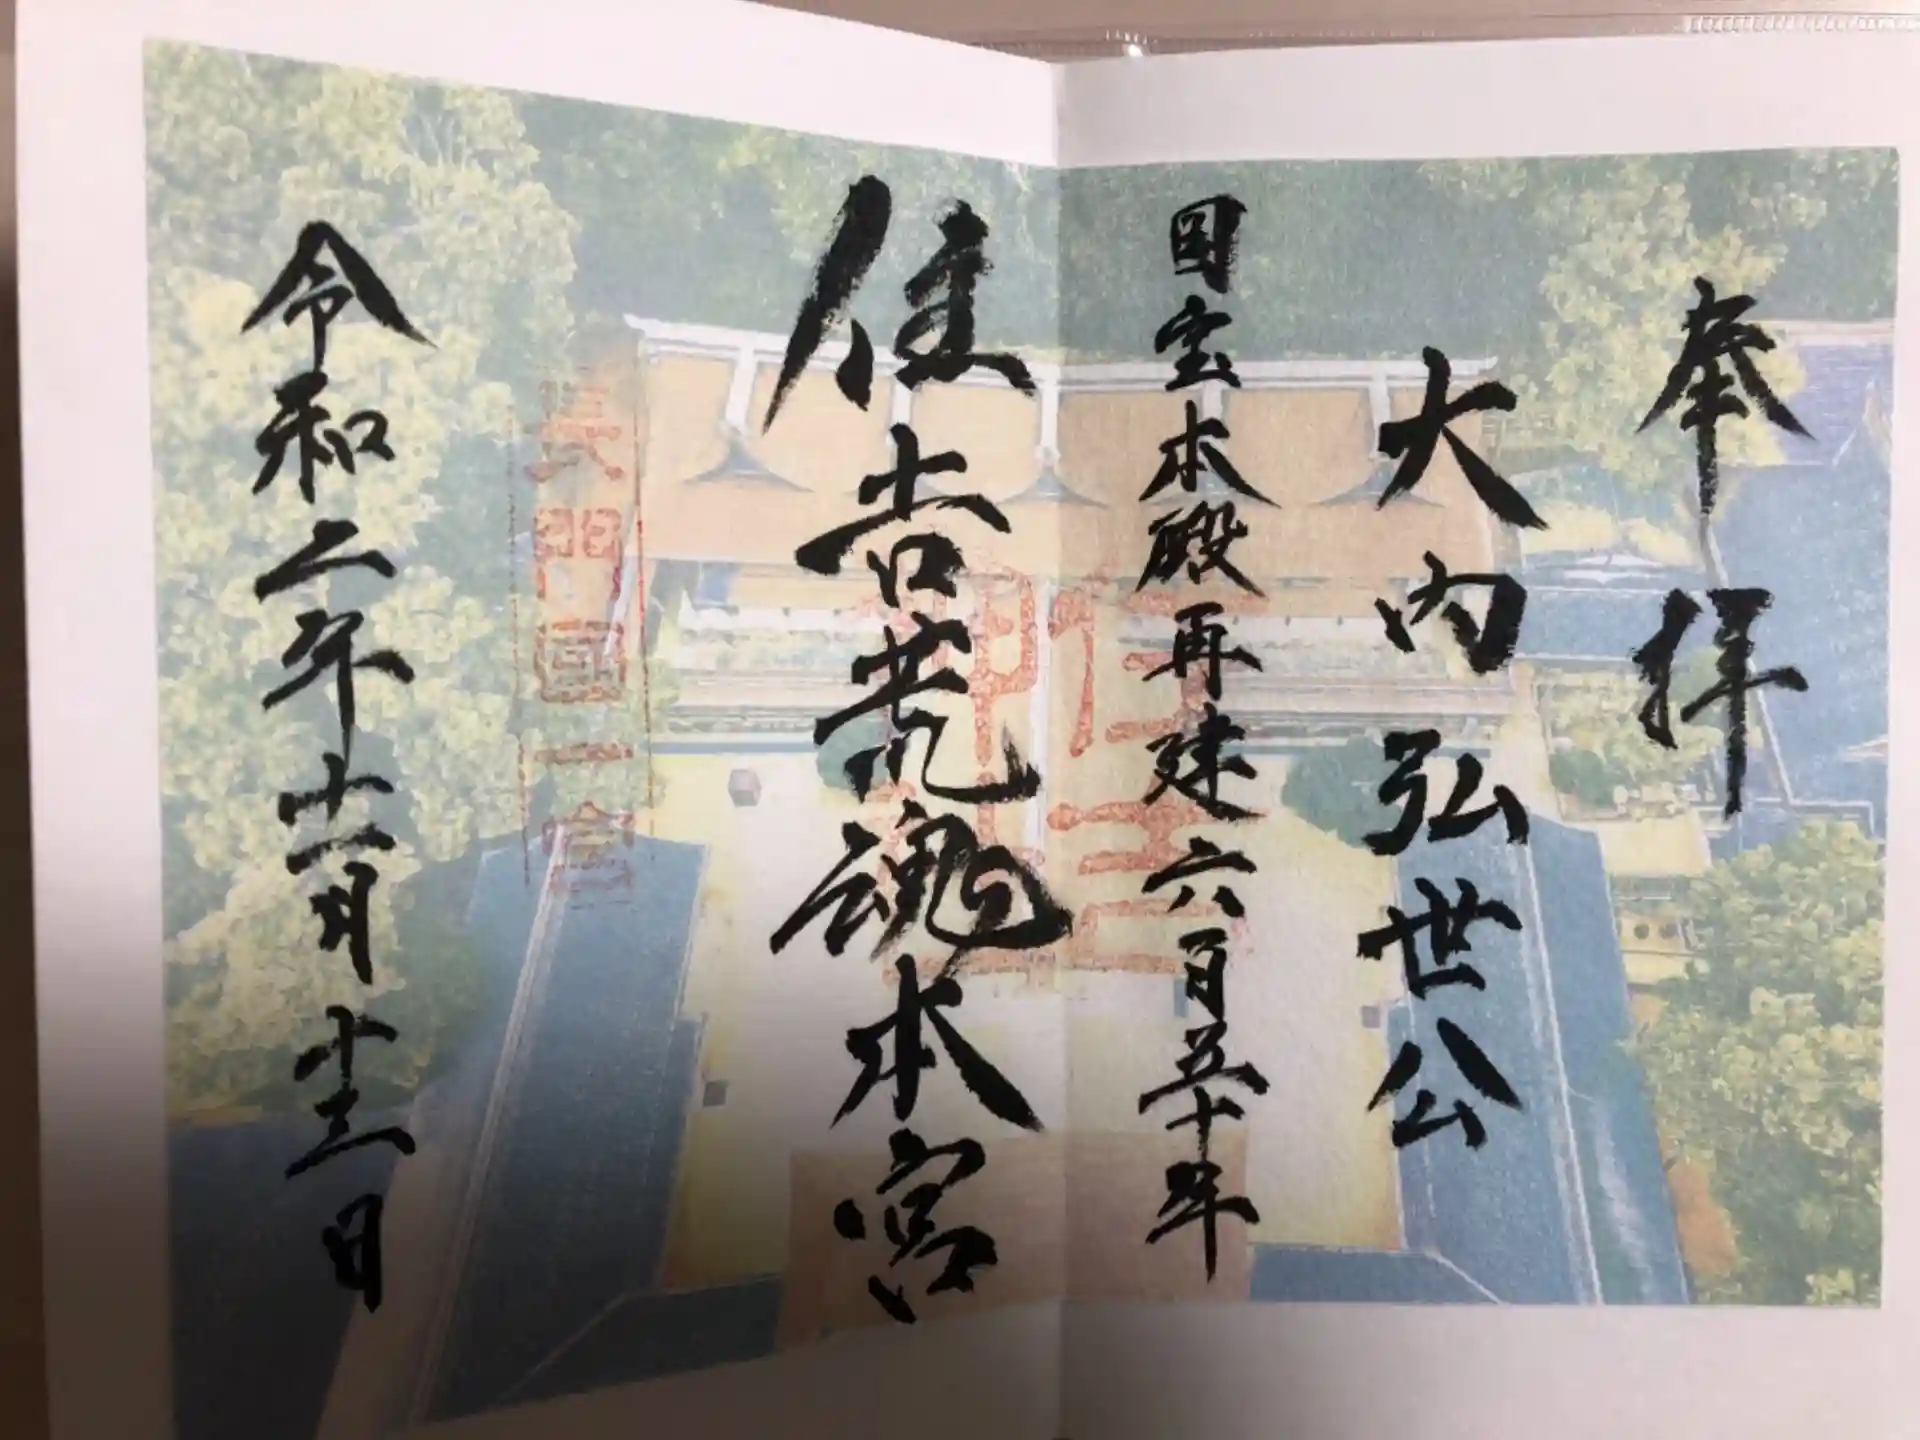 奉拝
大内弘世公
国宝本殿再建六百五十年
住吉荒魂本宮
長門國一宮
令和二年十二月十三日